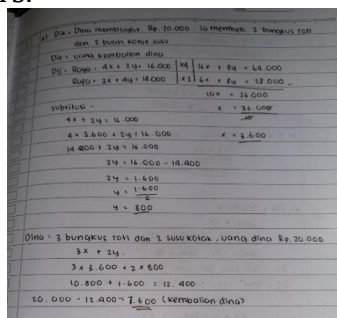 a) Dik = Dina membayar Rp. 20.000. Ia membeli 3 bungkus roti
dan 2 buah kotak susu
Dit = uang kembalian dina
Dij = Raya = 4x + 2y = 16.000 | x4 | 16x + 8y = 64.000
Raya = 3x + 4y = 14.000 | x2 | 6x + 8y = 28.000 -
10x = 36.000
subtitusi = x = 36.000
4x + 2y = 16.000
4 x 3.600 + 2y = 16.000 x = 3.600
14.400 + 2y = 16.000
2y = 16.000 - 14.400
2y = 1.600
y = 1.600
2
y = 800
Dina = 3 bungkus roti dan 2 susu kotak, uang dina Rp. 20.000
3x + 2y.
3 x 3.600 + 2 x 800
10.800 + 1.600 = 12.400
20.000 - 12.400 = 7.600 (kembalian dina)